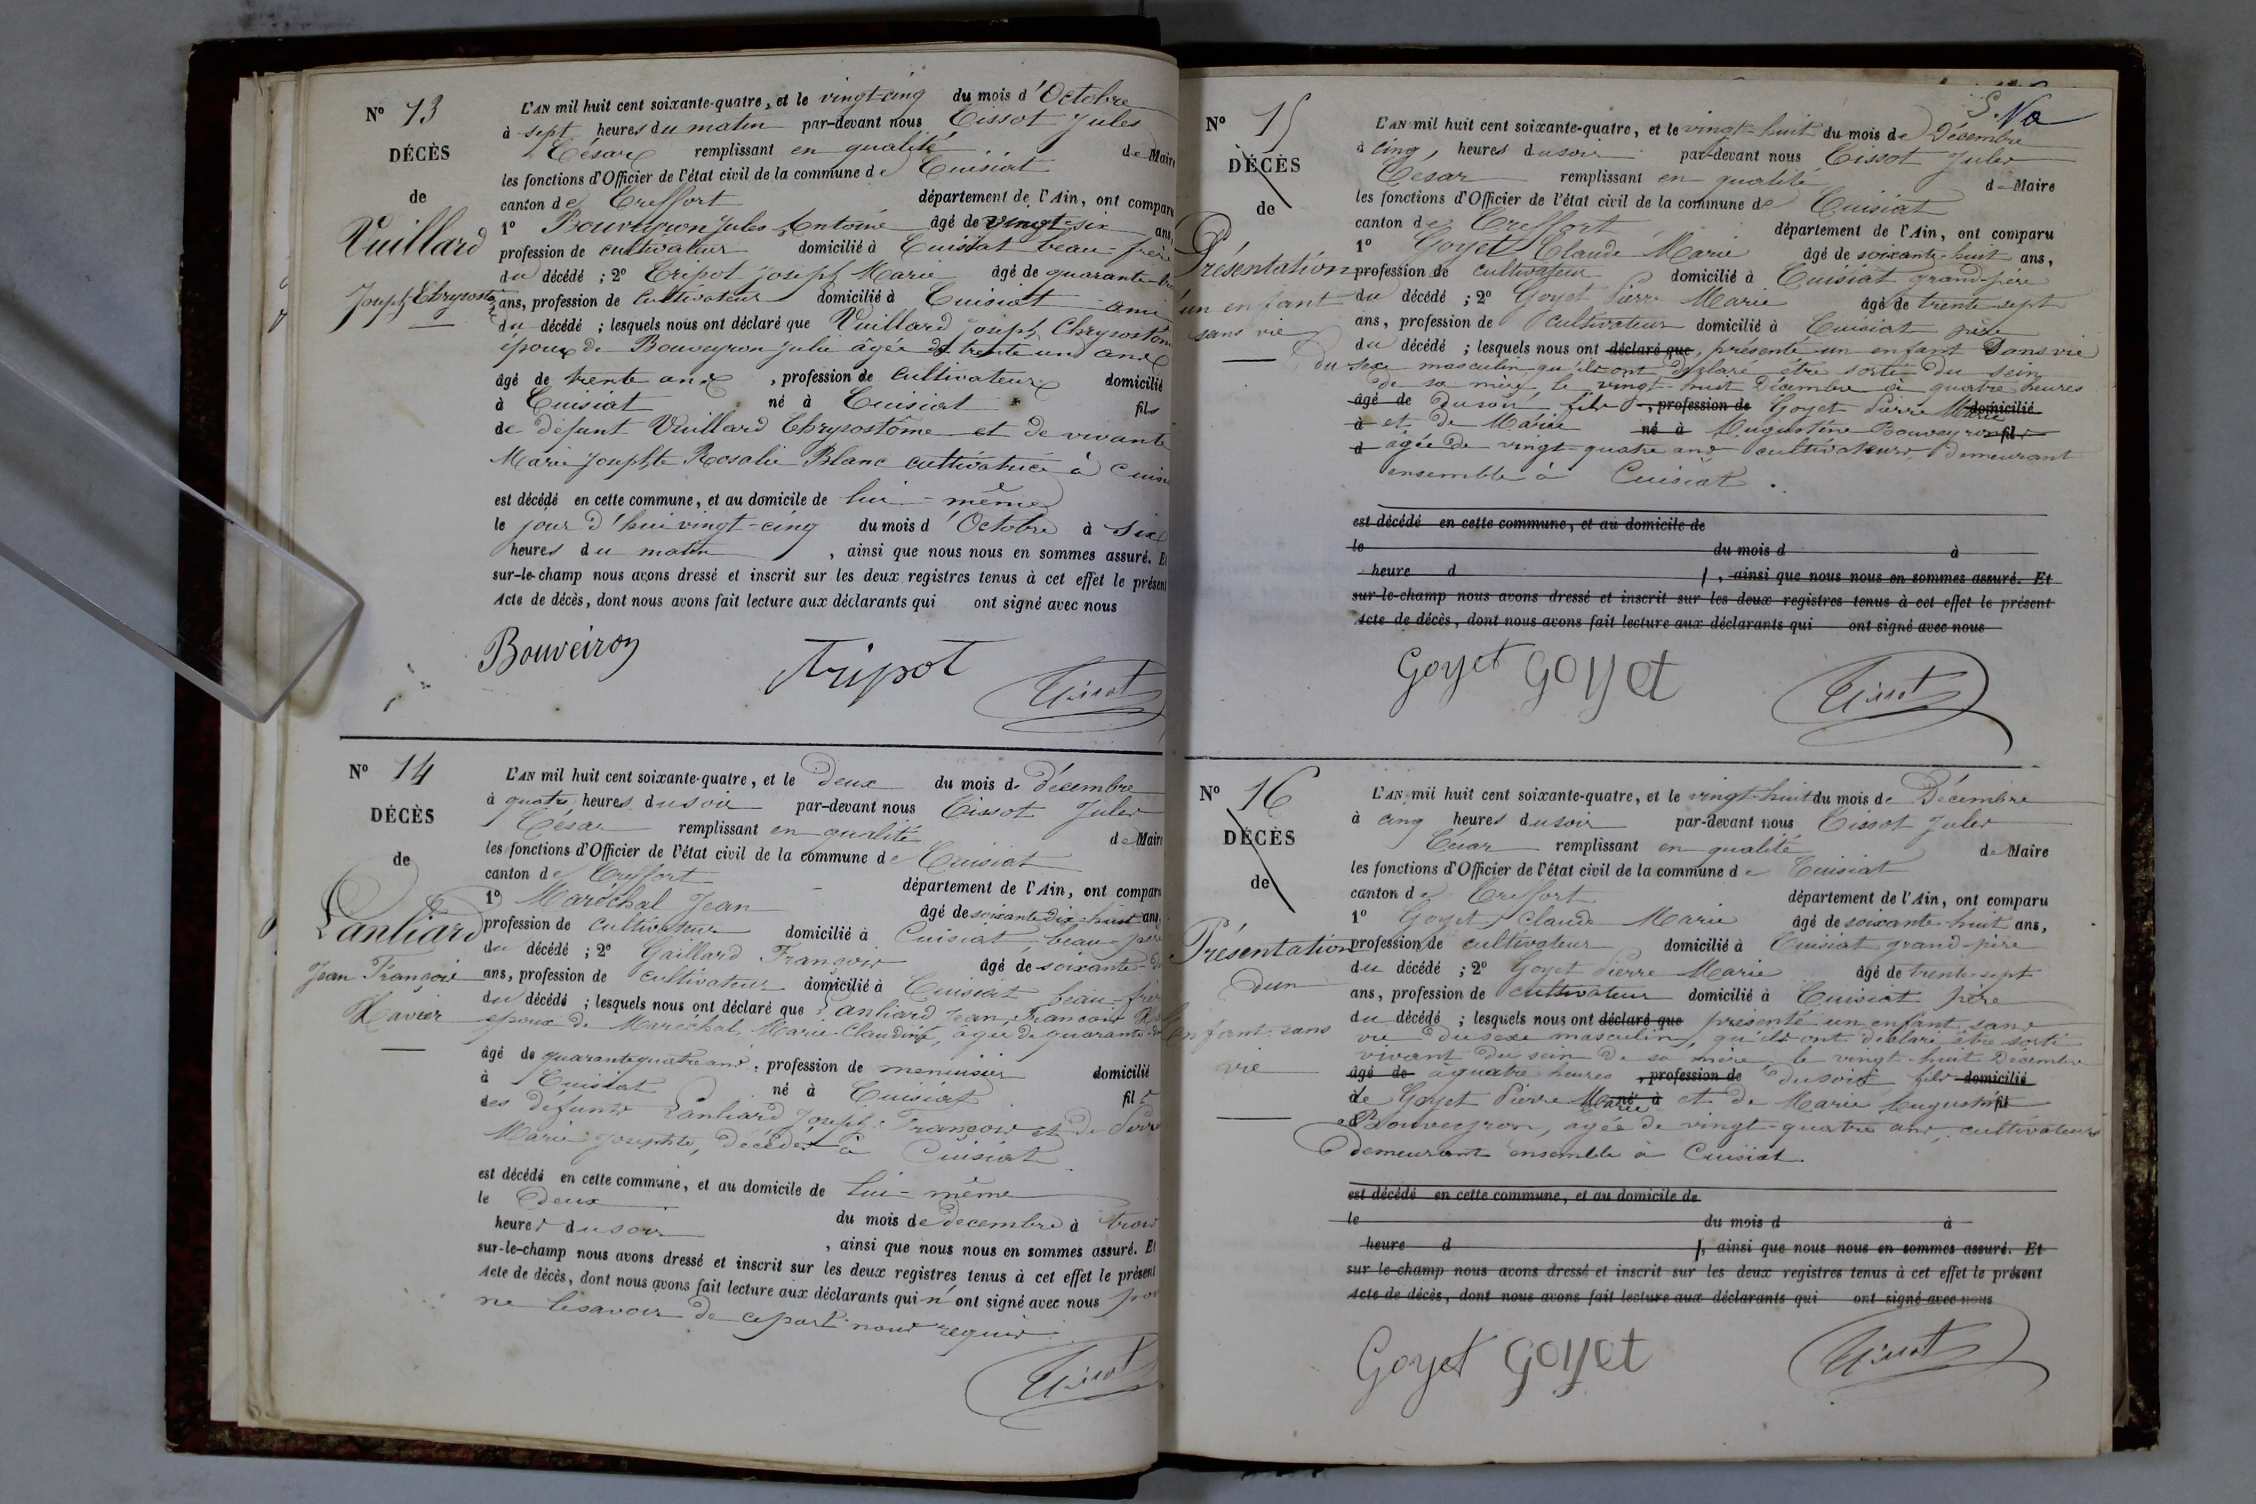 N° 13
DÉCÈS
de
Vuillard
Joseph Chrysostome
L'AN mil huit cent soixante-quatre, et le vingt-cinq du mois d'Octobre
à sept heures du matin par-devant nous Tissot Jules
César remplissant en qualité de Maire
les fonctions d'Officier de l'état civil de la commune de Cuisiat
canton de Treffort département de l'Ain, ont comparu
1° Bouveyron Jules Antoine âgé de vingt-six ans,
profession de cultivateur domicilié à Cuisiat beau-frère
du décédé ; 2° Tripot Joseph Marie âgé de quarante
ans, profession de cultivateur domicilié à Cuisiat ami
du décédé ; lesquels nous ont déclaré que Vuillard Joseph Chrysostôme
époux de Bouveyron Julie âgée de trente un ans
âgé de trente ans, profession de cultivateur domicilié
à Cuisiat né à Cuisiat fils
de défunt Vuillard Chrysostôme et de vivante
Marie Josephte Rosalie Blanc cultivatrice à Cuisiat
est décédé en cette commune, et au domicile de lui-même
le jour d'hui vingt-cinq du mois d'Octobre à six
heures du matin, ainsi que nous nous en sommes assuré. Et
sur-le-champ nous avons dressé et inscrit sur les deux registres tenus à cet effet le présent
Acte de décès, dont nous avons fait lecture aux déclarants qui ont signé avec nous
Bouveiron Tripot Tissot
N° 14
DÉCÈS
de
Lanliard
Jean François
Xavier
L'AN mil huit cent soixante-quatre, et le deux du mois de décembre
à quatre heures du soir par-devant nous Tissot Jules
César remplissant en qualité de Maire
les fonctions d'Officier de l'état civil de la commune de Cuisiat
canton de Treffort département de l'Ain, ont comparu
1° Maréchal Jean âgé de soixante dix-huit ans,
profession de cultivateur domicilié à Cuisiat, beau-père
du décédé ; 2° Gaillard François âgé de soixante
ans, profession de cultivateur domicilié à Cuisiat beau-frère
du décédé ; lesquels nous ont déclaré que Lanliard Jean François
époux de Maréchal Marie-Claudine, âgée de quarante
âgé de quarante quatre ans, profession de menuisier domicilié
à Cuisiat né à Cuisiat fils
des défunts Lanliard Joseph François et de
Marie Josephte, décédés à Cuisiat
est décédé en cette commune, et au domicile de lui-même
le deux du mois de décembre à trois
heures du soir, ainsi que nous nous en sommes assuré. Et
sur-le-champ nous avons dressé et inscrit sur les deux registres tenus à cet effet le présent
Acte de décès, dont nous avons fait lecture aux déclarants qui n'ont signé avec nous pour
ne le savoir de ce part nous requis
Tissot
N° 15
DÉCÈS
de
Présentation
d'un enfant
sans vie
L'AN mil huit cent soixante-quatre, et le vingt-huit du mois de Décembre
à cinq, heures du soir par-devant nous Tissot Jules
César remplissant en qualité de Maire
les fonctions d'Officier de l'état civil de la commune de Cuisiat
canton de Treffort département de l'Ain, ont comparu
1° Goyet Claude Marie âgé de soixante-huit ans,
profession de cultivateur domicilié à Cuisiat grand-père
du décédé ; 2° Goyet Pierre Marie âgé de trente-sept
ans, profession de cultivateur domicilié à Cuisiat père
du décédé ; lesquels nous ont déclaré que, présenté un enfant sans vie
du sexe masculin qu'ils ont déclaré être sorti du sein
de sa mère, le vingt-huit Décembre à quatre heures
âgé de du soir, fils, profession de Goyet Pierre Marie domicilié
à et de Marie né à Augustine Bouveyron fil
d âgée de vingt-quatre ans cultivateurs, demeurant
ensemble à Cuisiat.
est décédé en cette commune, et au domicile de
le du mois d à
heure d, ainsi que nous nous en sommes assuré. Et
sur-le-champ nous avons dressé et inscrit sur les deux registres tenus à cet effet le présent
Acte de décès, dont nous avons fait lecture aux déclarants qui ont signé avec nous
Goyet Goyet Tissot
N° 16
DÉCÈS
de
Présentation
d'un
enfant sans
vie
L'AN mil huit cent soixante-quatre, et le vingt-huit du mois de Décembre
à cinq heures du soir par-devant nous Tissot Jules
César remplissant en qualité de Maire
les fonctions d'Officier de l'état civil de la commune de Cuisiat
canton de Treffort département de l'Ain, ont comparu
1° Goyet, Claude Marie âgé de soixante-huit ans,
profession de cultivateur domicilié à Cuisiat grand-père
du décédé ; 2° Goyet Pierre Marie âgé de trente-sept
ans, profession de cultivateur domicilié à Cuisiat père
du décédé ; lesquels nous ont déclaré que présenté un enfant sans
vie du sexe masculin, qu'ils ont déclaré être sorti
vivant du sein de sa mère le vingt-huit Décembre
âgé de à quatre heures, profession de du soir fils domicilié
de Goyet Pierre Marie né à et de Marie Augustine fil
Bouveyron, âgée de vingt-quatre ans, cultivateurs
demeurant ensemble à Cuisiat.
est décédé en cette commune, et au domicile de
le du mois d à
heure d, ainsi que nous nous en sommes assuré. Et
sur-le-champ nous avons dressé et inscrit sur les deux registres tenus à cet effet le présent
Acte de décès, dont nous avons fait lecture aux déclarants qui ont signé avec nous
Goyet Goyet Tissot